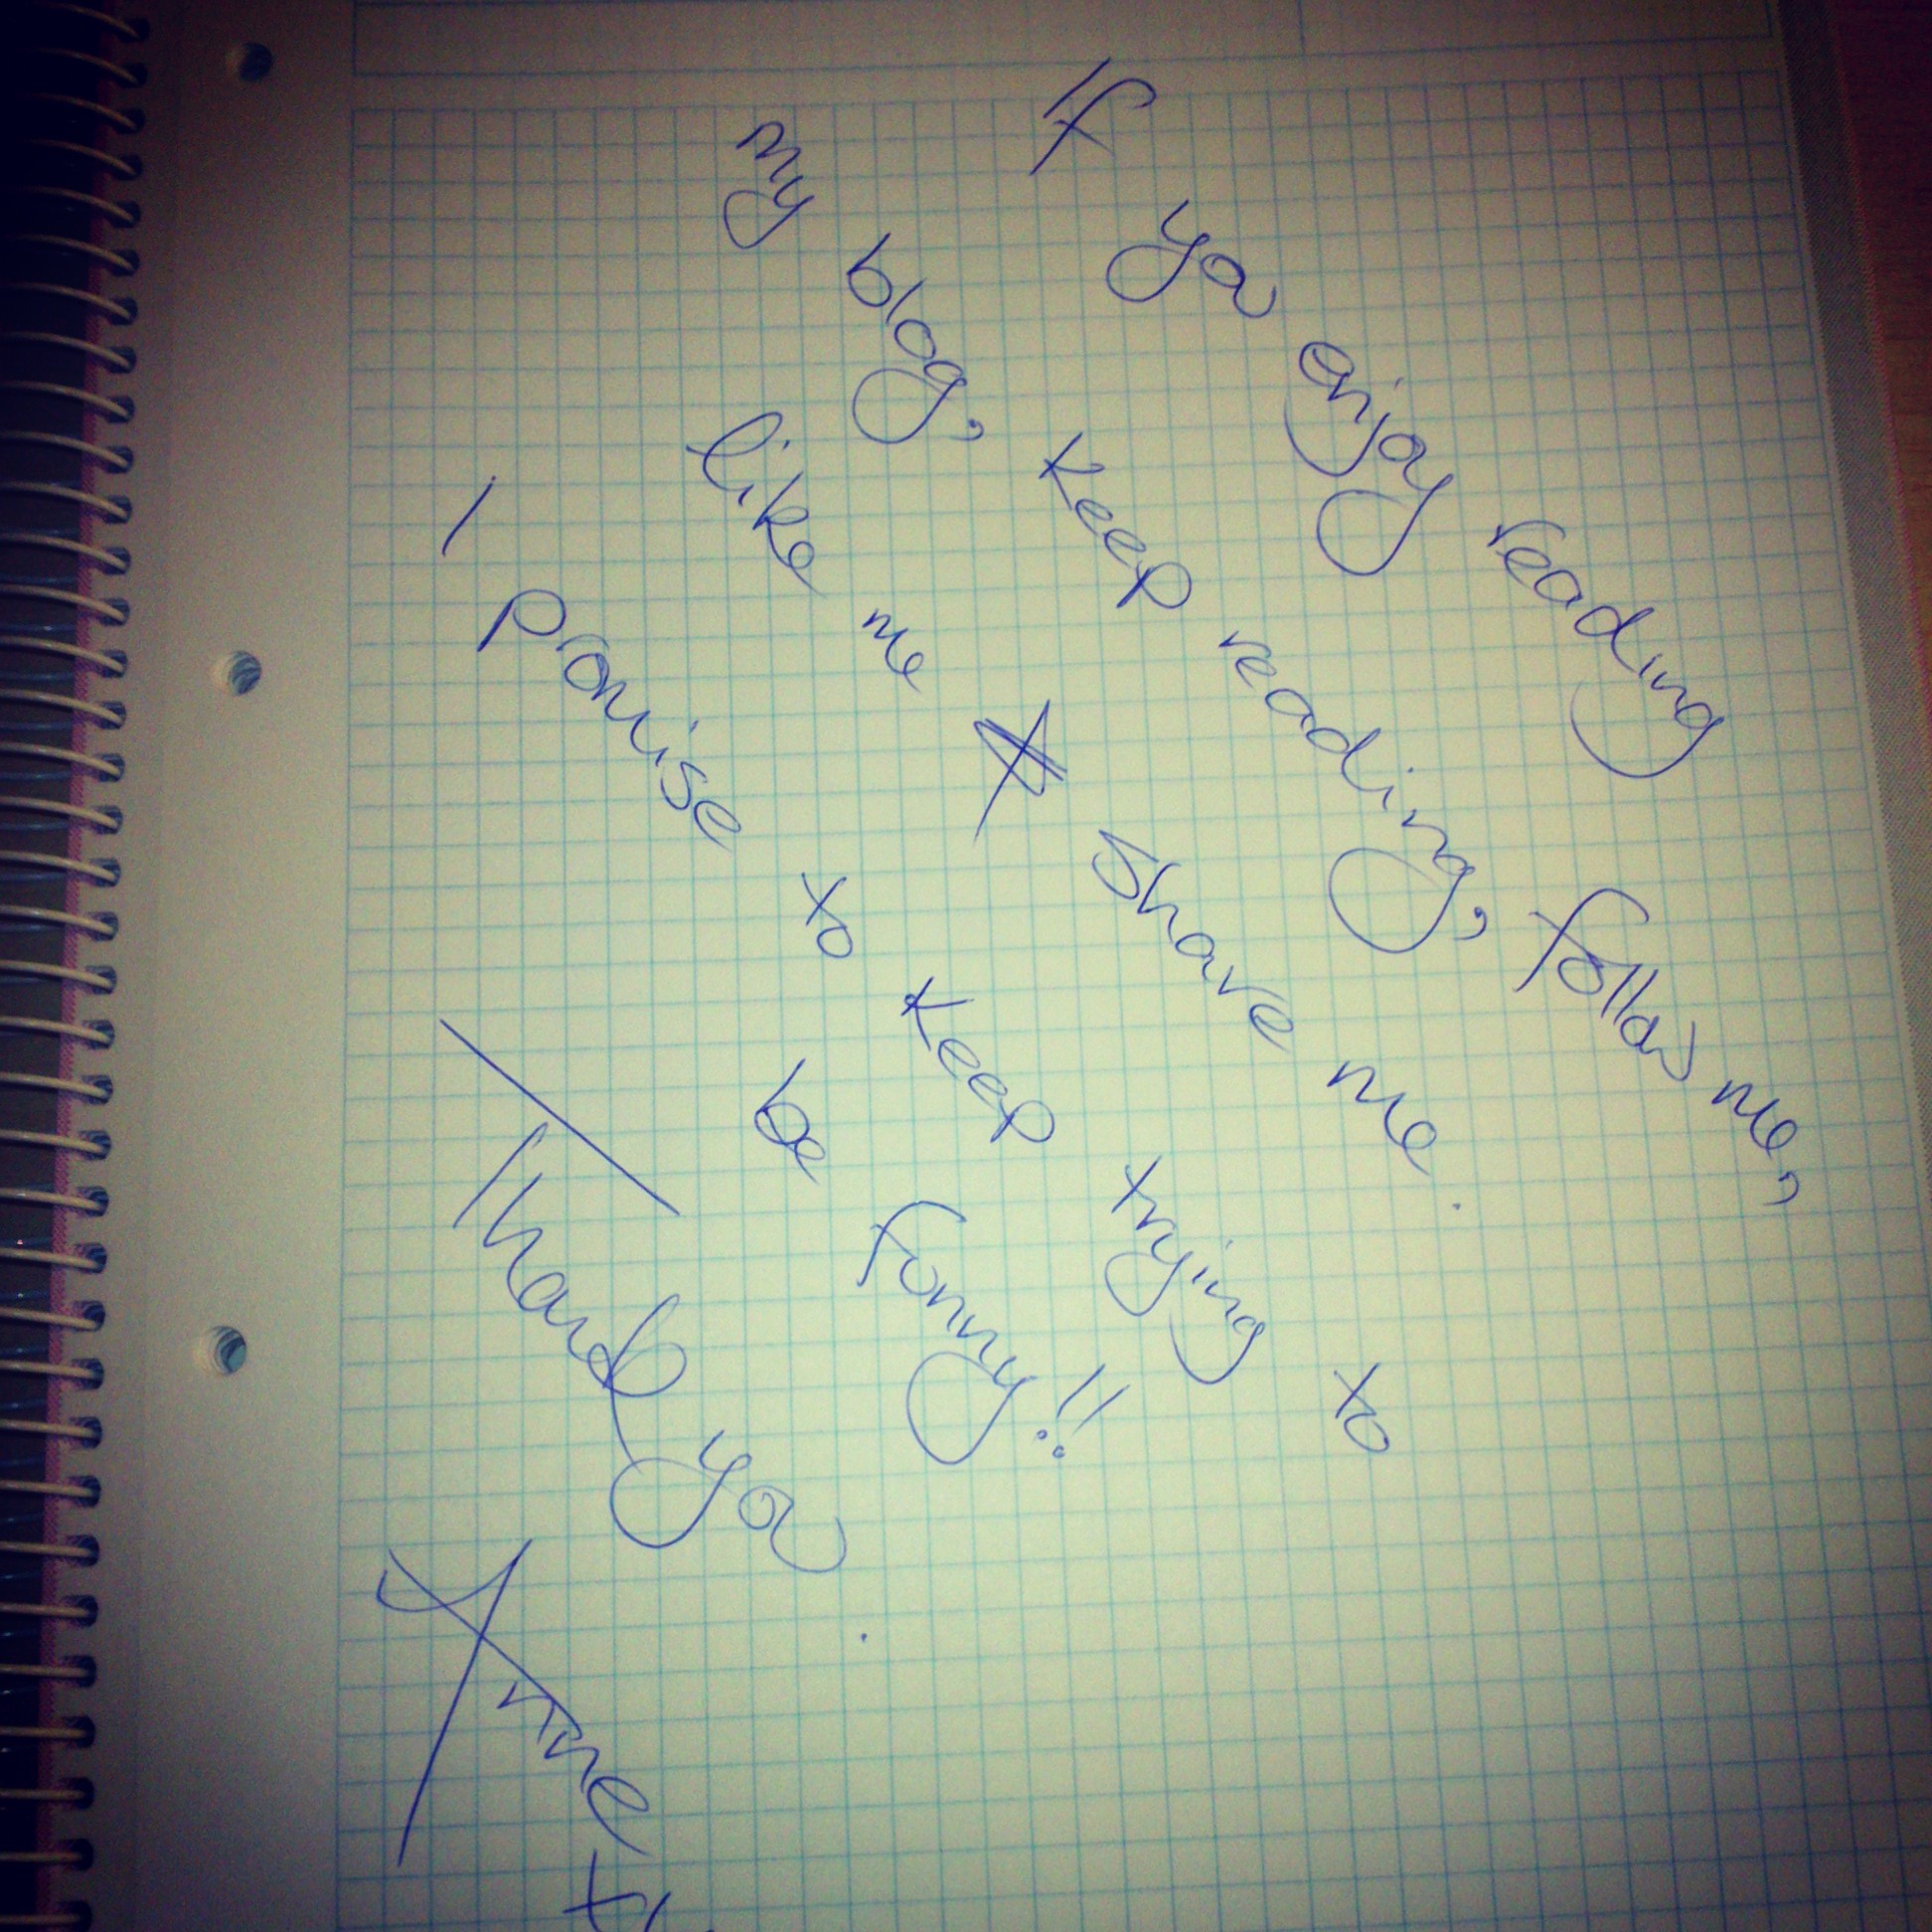 If you enjoy reading
my blog, keep reading, follow me,
like me & share me.
I promise to keep trying to
be fonny!!
Thank you.
Anne